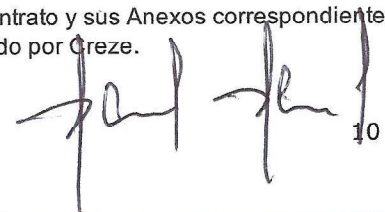 ntrato y sus Anexos correspondiente
do por Creze.
10